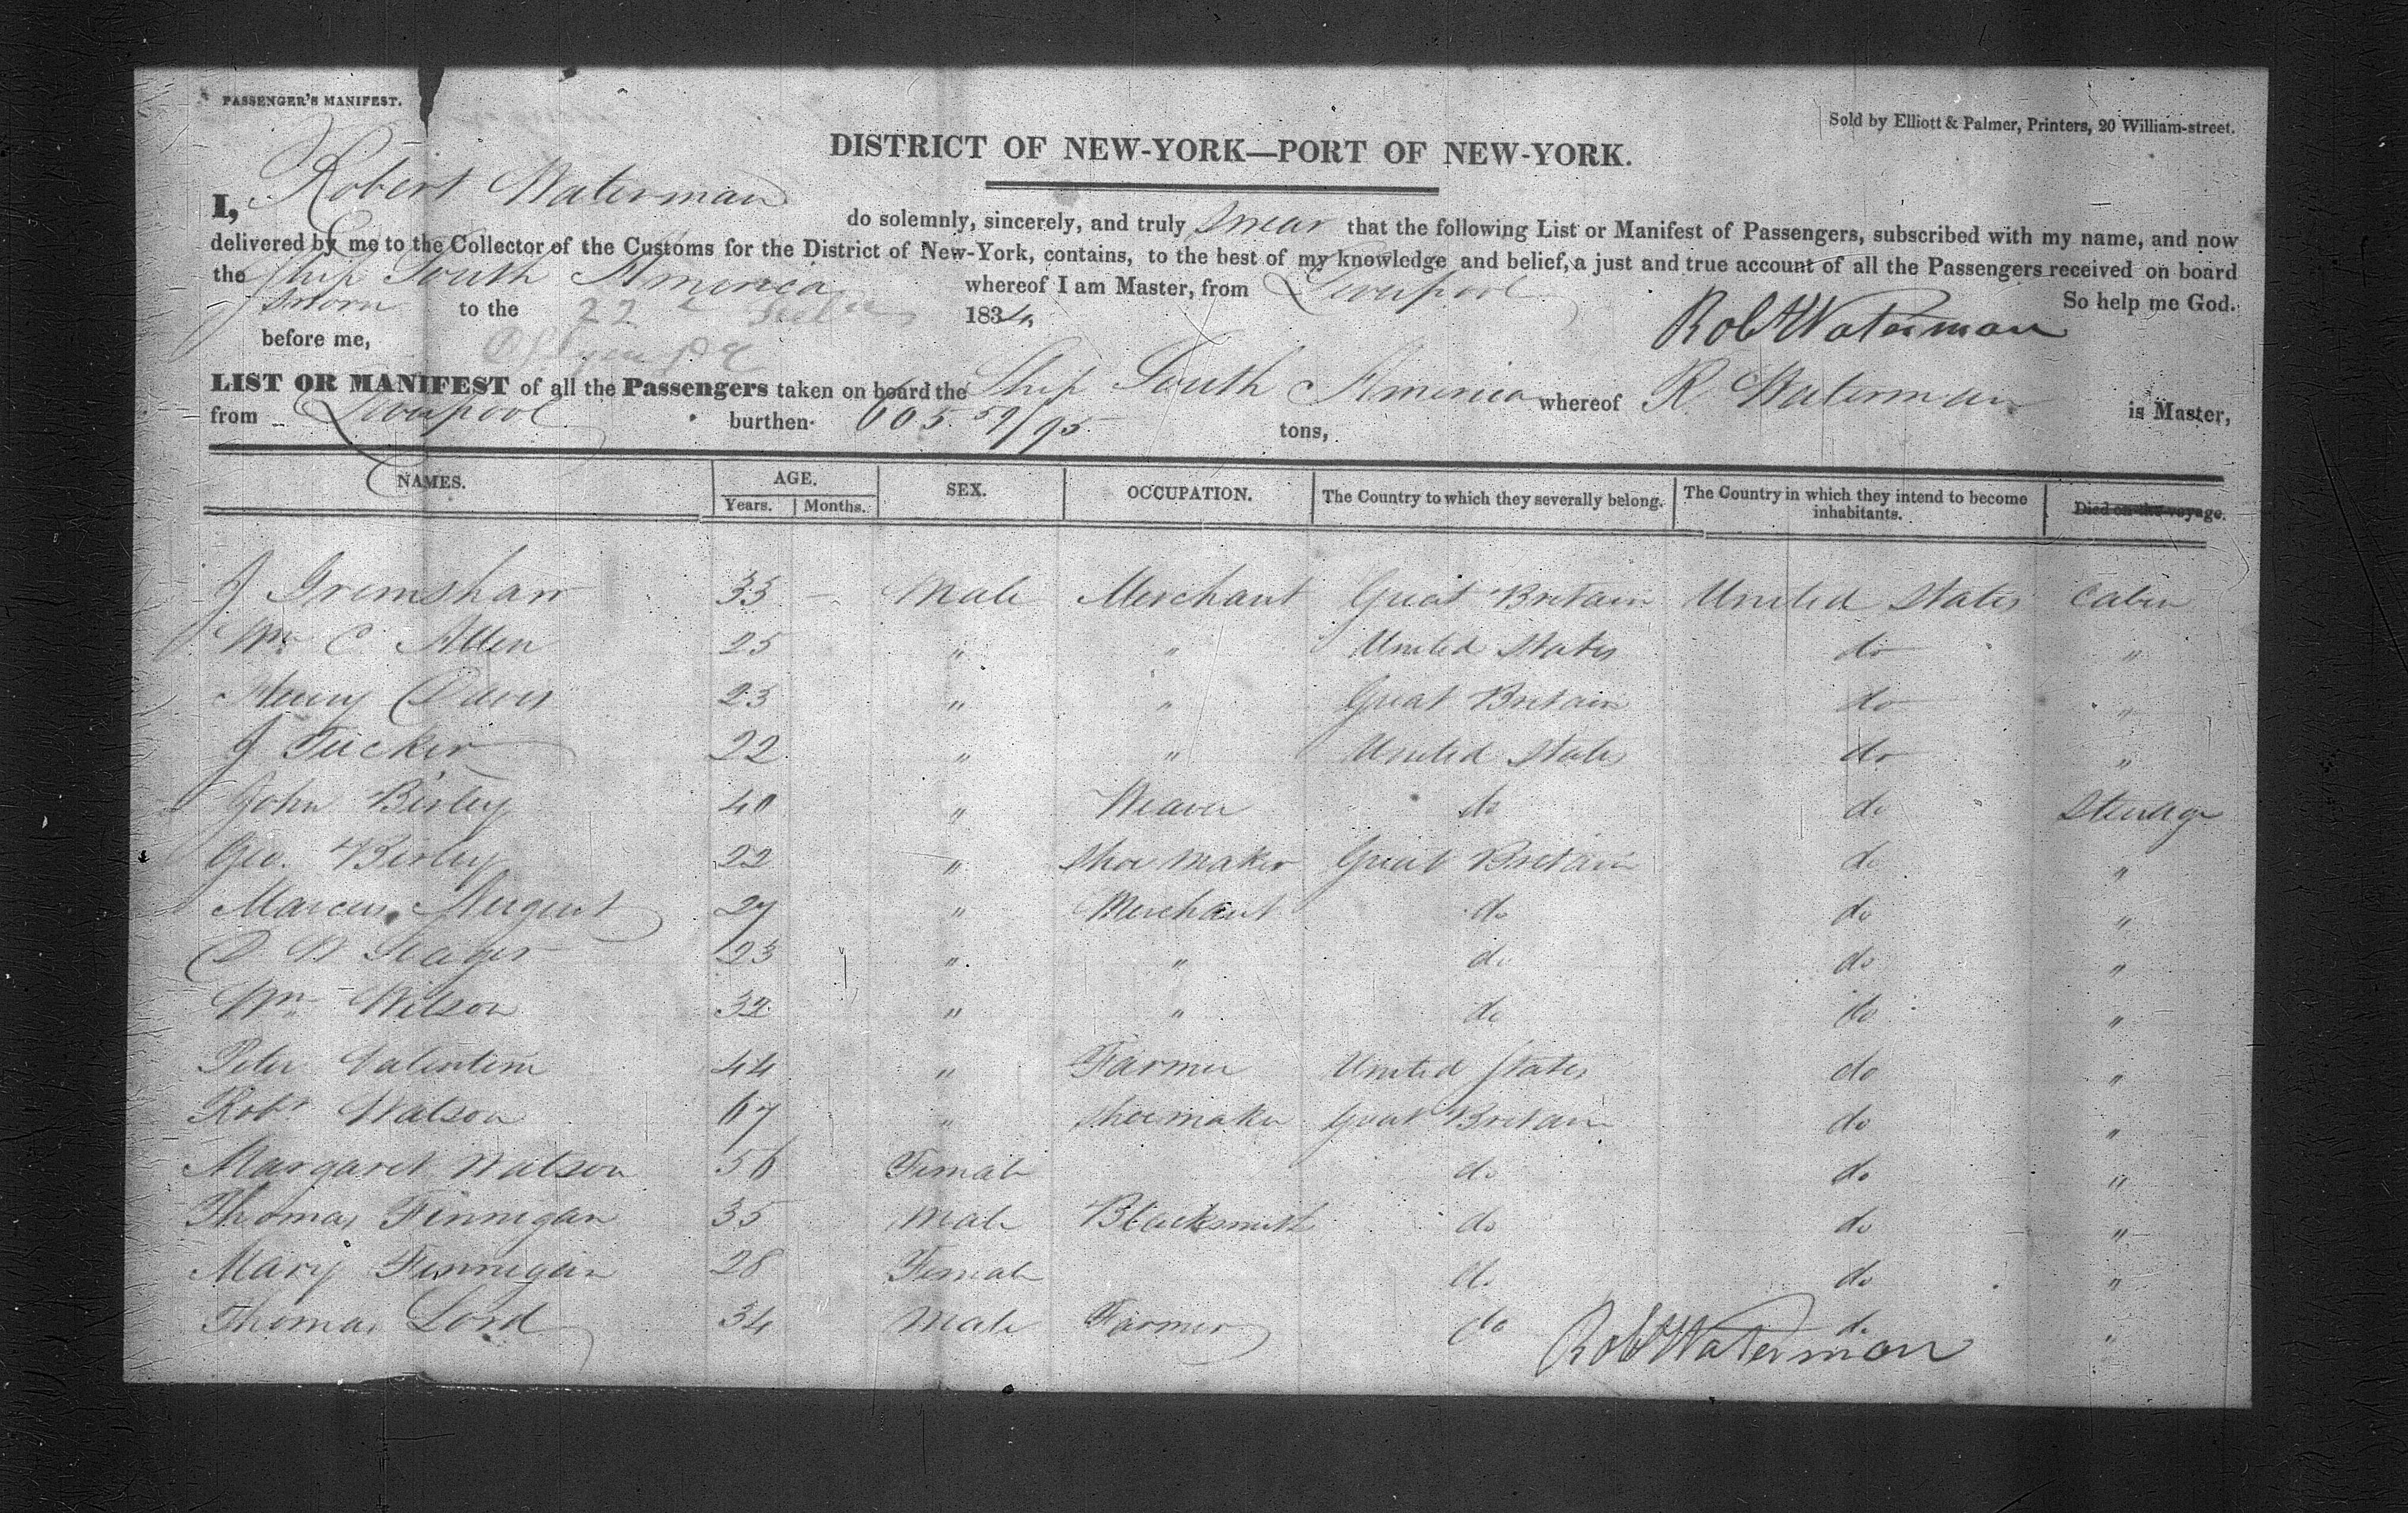 PASSENGER'S MANIFEST.
Sold by Elliott & Palmer, Printers, 20 William-street.
DISTRICT OF NEW-YORK—PORT OF NEW-YORK.
I, Robert Waterman do solemnly, sincerely, and truly Swear that the following List or Manifest of Passengers, subscribed with my name, and now
delivered by me to the Collector of the Customs for the District of New-York, contains, to the best of my knowledge and belief, a just and true account of all the Passengers received on board
the Ship South America whereof I am Master, from Liverpool So help me God.
Sworn to the 22 1834, Robt Waterman
before me,
LIST OR MANIFEST of all the Passengers taken on board the Ship South America whereof R Waterman is Master,
from Liverpool burthen 605 59/95 tons,
NAMES. AGE. SEX. OCCUPATION. The Country to which they severally belong. The Country in which they intend to become inhabitants. Died on the voyage.
Years. Months.
J Grimshaw 33 – Male Merchant Great Britain United States Cabin
Wm C Allen 25 " " United States do "
Henry Davis 23 " " Great Britain do "
J Tucker 22 " " United States do "
John Birley 40 " Weaver do do Steerage
Geo. Birley 22 " Shoe Maker Great Britain do "
Marcus Nugent 27 " Merchant do do "
D W Seager 23 " " do do "
Wm Wilson 32 " " do do "
Peter Valentine 44 " Farmer United States do "
Robt Watson 67 " Shoemaker Great Britain do "
Margaret Watson 56 Female do do "
Thomas Finnigan 35 Male Blacksmith do do "
Mary Finnigan 28 Female do do "
Thomas Lord 34 Male Farmer do do "
Robt Waterman